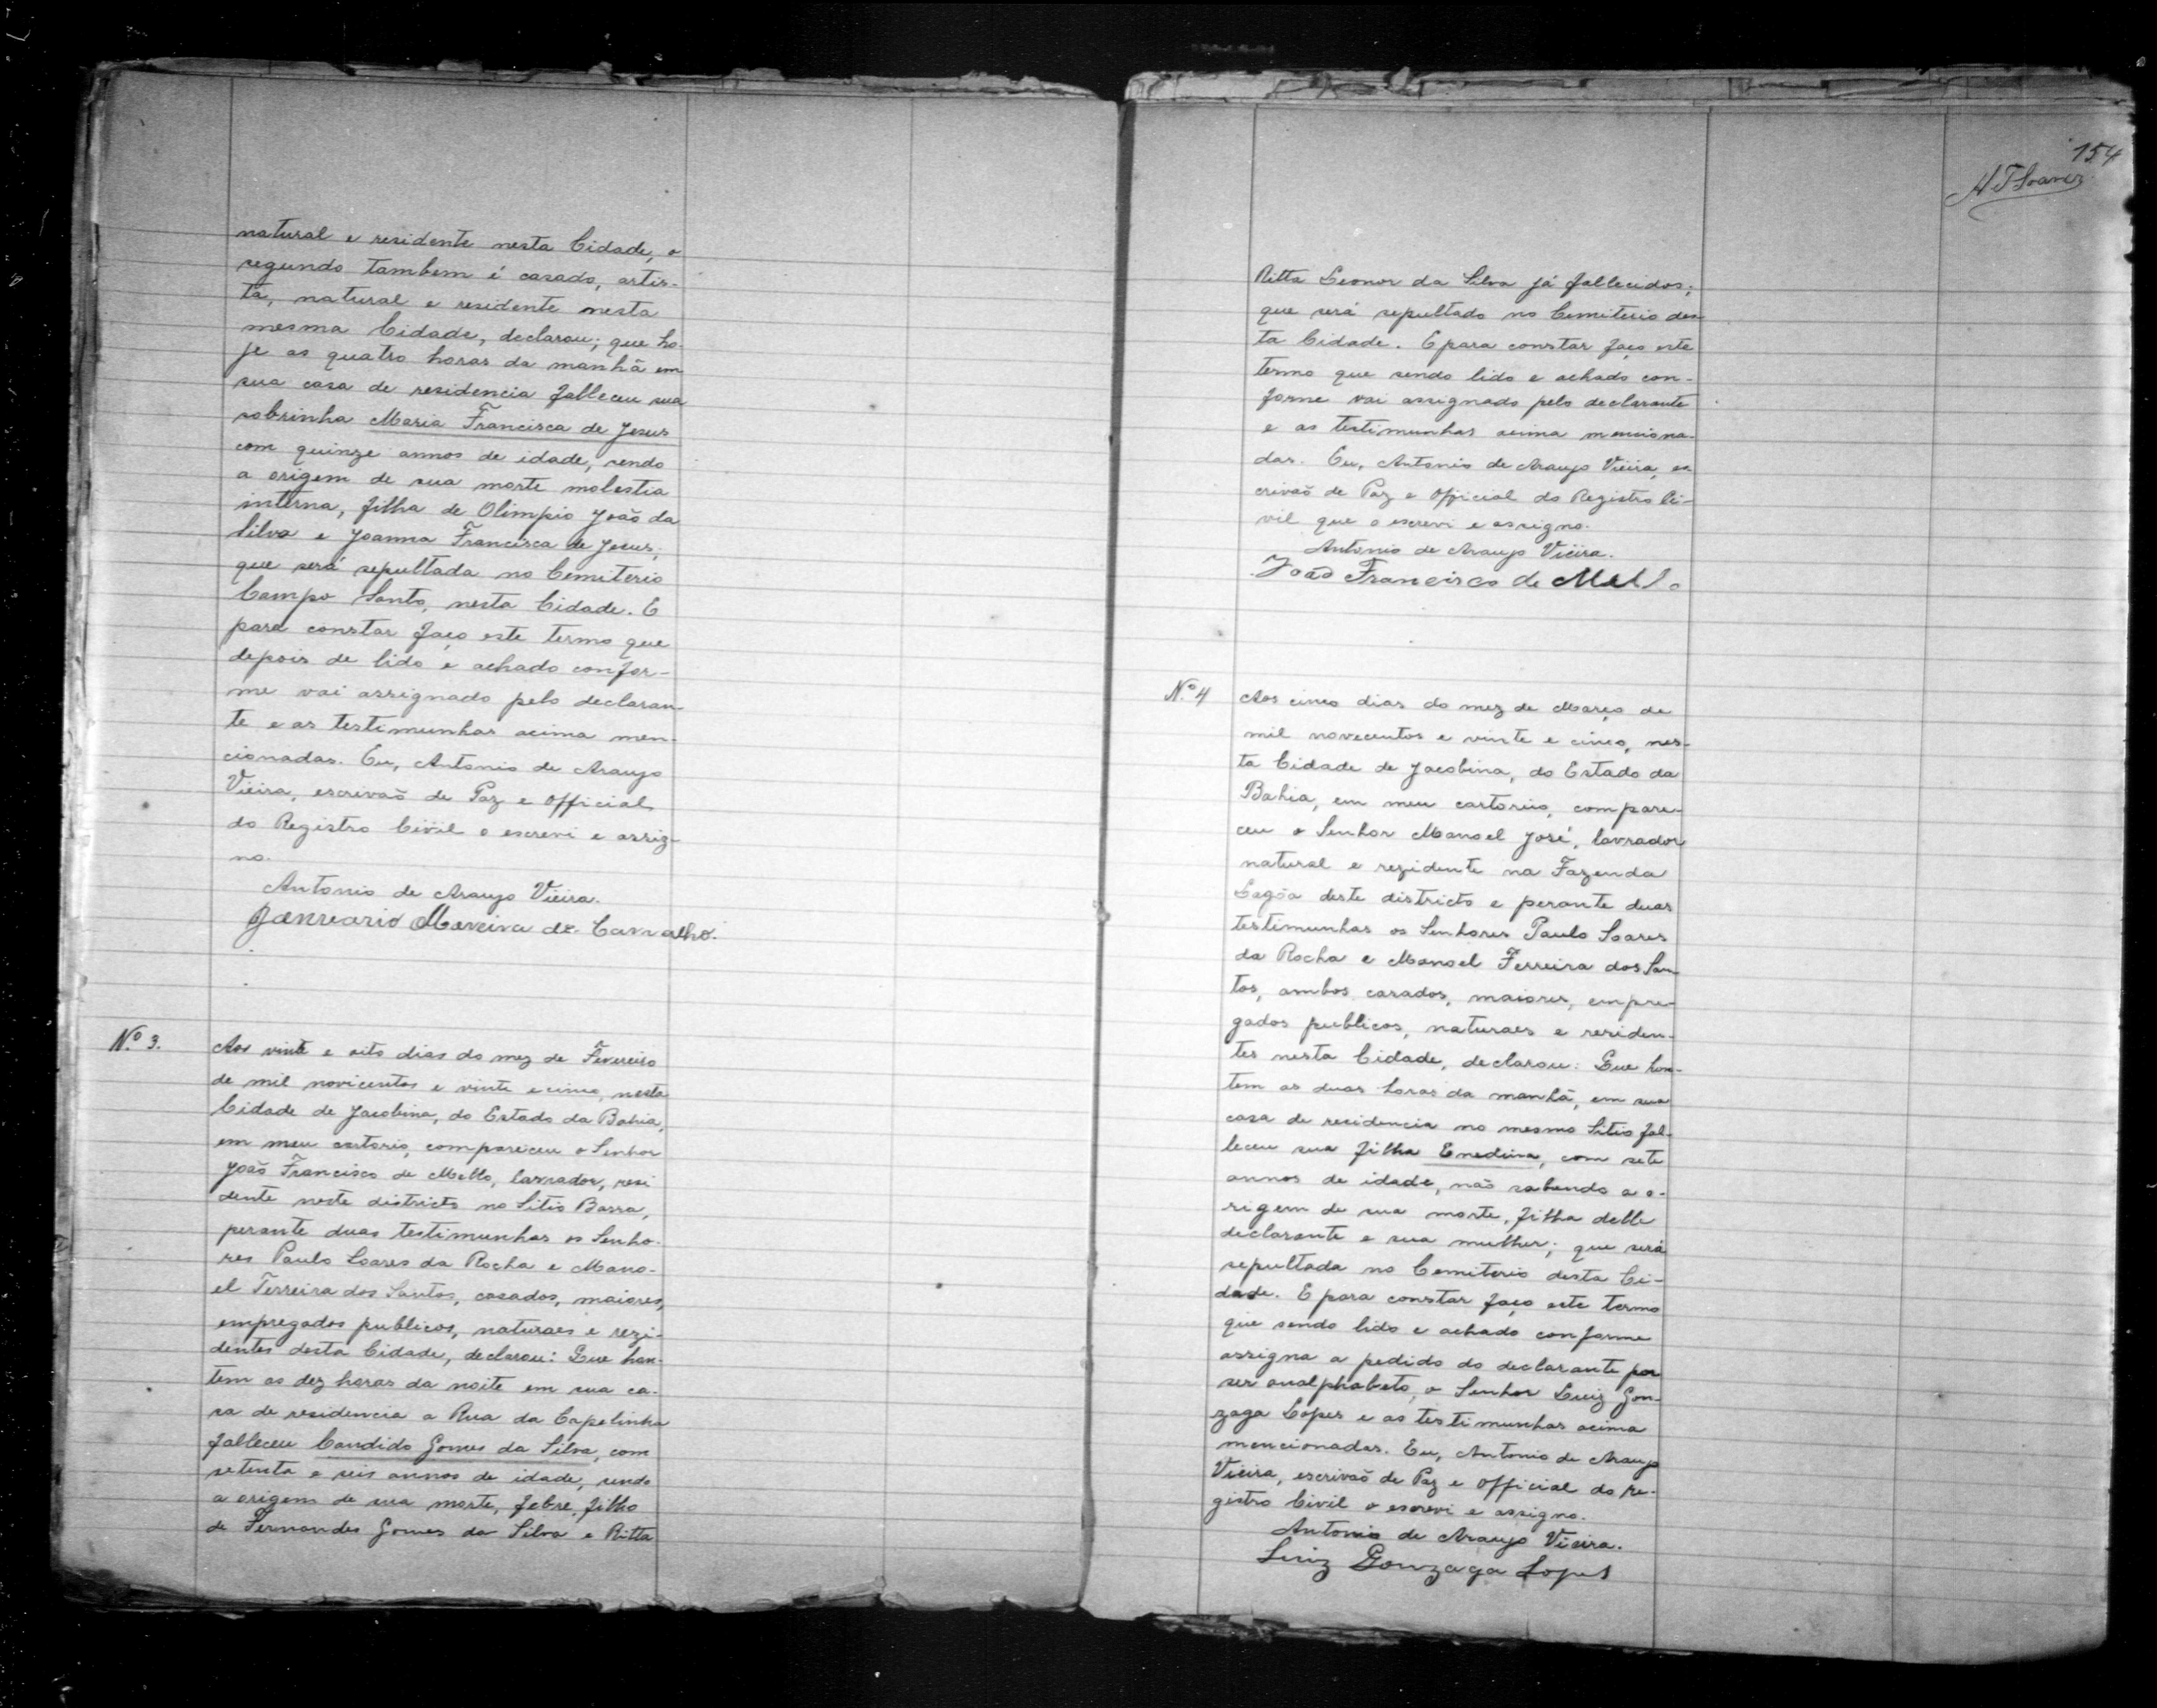 natural e residente nesta Cidade, o
segundo tambem é casado, artis-
ta, natural e residente nesta
mesma Cidade, declarou; que ho-
je as quatro horas da manhã em
sua casa de residencia falleceu sua
sobrinha Maria Francisca de Jesus
com quinze annos de idade, sendo
a origem de sua morte molestia
interna, filha de Olimpio João da
Silva e Joanna Francisca de Jesus;
que será sepultada no Cemiterio
Campo Santo, nesta Cidade. E
para constar faço este termo que
depois de lido e achado confor-
me vai assignado pelo declaran-
te e as testimunhas acima men-
cionadas. Eu, Antonio de Araujo
Vieira, escrivaõ de Paz e official
do Registro Civil o escrevi e assig-
no.
Antonio de Araujo Vieira.
Januario Moreira de Carvalho.
N.º 3.
Aos vinte e oito dias do mez de Fevereiro
de mil novicentos e vinte e cinco, nesta
Cidade de Jacobina, do Estado da Bahia,
em meu cartorio, compareceu o Senhor
João Francisco de Mello, lavrador, resi
dente neste districto no Sitio Barra,
perante duas testimunhas os Senho-
res Paulo Soares da Rocha e Mano-
el Ferreira dos Santos, casados, maiores,
empregados publicos, naturaes e rezi-
dentes desta Cidade, declarou: Que hon-
tem as dez horas da noite em sua ca-
sa de residencia a Rua da Capelinha
falleceu Candido Gomes da Silva, com
setenta e seis annos de idade, sendo
a origem de sua morte, febre, filho
de Fernandes Gomes da Silva e Ritta
154
H T Soares
Ritta Leonor da Silva já fallecidos;
que será sepultado no Cemiterio des-
ta Cidade. E para constar faço este
termo que sendo lido e achado con-
forme vai assignado pelo declarante
e as testimunhas acima menciona-
das. Eu, Antonio de Araujo Vieira, es
crivaõ de Paz e Official do Registro Ci-
vil que o escrevi e assigno.
Antonio de Araujo Vieira.
João Francisco de Mello
N.º 4
Aos cinco dias do mez de Março de
mil novecentos e vinte e cinco, nes-
ta Cidade de Jacobina, do Estado da
Bahia, em meu cartorio, compare-
ceu o Senhor Manoel José, lavrador
natural e rezidente na Fazenda
Lagôa deste districto e perante duas
testimunhas os Senhores Paulo Soares
da Rocha e Manoel Ferreira dos San-
tos, ambos casados, maiores, empre-
gados publicos, naturaes e residen-
tes nesta Cidade, declarou: Que hon-
tem as duas horas da manhã, em sua
casa de residencia no mesmo Sitio fal-
leceu sua filha Enedina, com sete
annos de idade, não sabendo a o-
rigem de sua morte, filha delle
declarante e sua mulher; que será
sepultada no Cemiterio desta Ci-
dade. E para constar faço este termo
que sendo lido e achado conforme
assigna a pedido do declarante por
ser analphabeto, o Senhor Luiz Gon-
zaga Lopes e as testimunhas acima
mencionadas. Eu, Antonio de Araujo
Vieira, escrivaõ de Paz e official do re-
gistro Civil o escrevi e assigno.
Antonio de Araujo Vieira.
Luiz Gonzaga Lopes